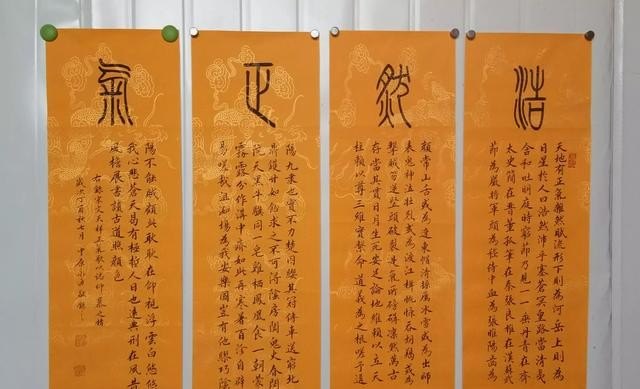 浩
天地有正氣雜然賦流形下則為河岳上則為
日星於人曰浩然沛乎塞蒼冥皇路當清夷
含和吐明庭時窮節乃見一一垂丹青在齊
太史簡在晉董狐筆在秦張良椎在漢蘇武
節為嚴將軍頭為嵇侍中血為張睢陽齒為
然
顏常山舌或為遼東帽清操厲冰雪或為出師
表鬼神泣壯烈或為渡江楫慷慨吞胡羯或為
擊賊笏逆豎頭破裂是氣所磅礴凜然萬古
存當其貫日月生死安足論地維賴以立天
柱賴以尊三綱實繫命道義為之根嗟予遘
正
陽九隸也實不力楚囚纓其冠傳車送窮北
鼎鑊甘如飴求之不可得陰房闃鬼火春院閟
天黑牛驥同一皂雞棲鳳凰食一朝蒙
霧露分作溝中瘠如此再寒暑百沴自辟
易嗟哉沮洳場為我安樂國豈有他繆巧陰
氣
陽不能賊顧此耿耿在仰視浮雲白悠悠
我心悲蒼天曷有極哲人日已遠典刑在夙昔
風檐展書讀古道照顏色
右錄宋文天祥正氣歌以誌仰慕之情
歲次丁酉秋七月